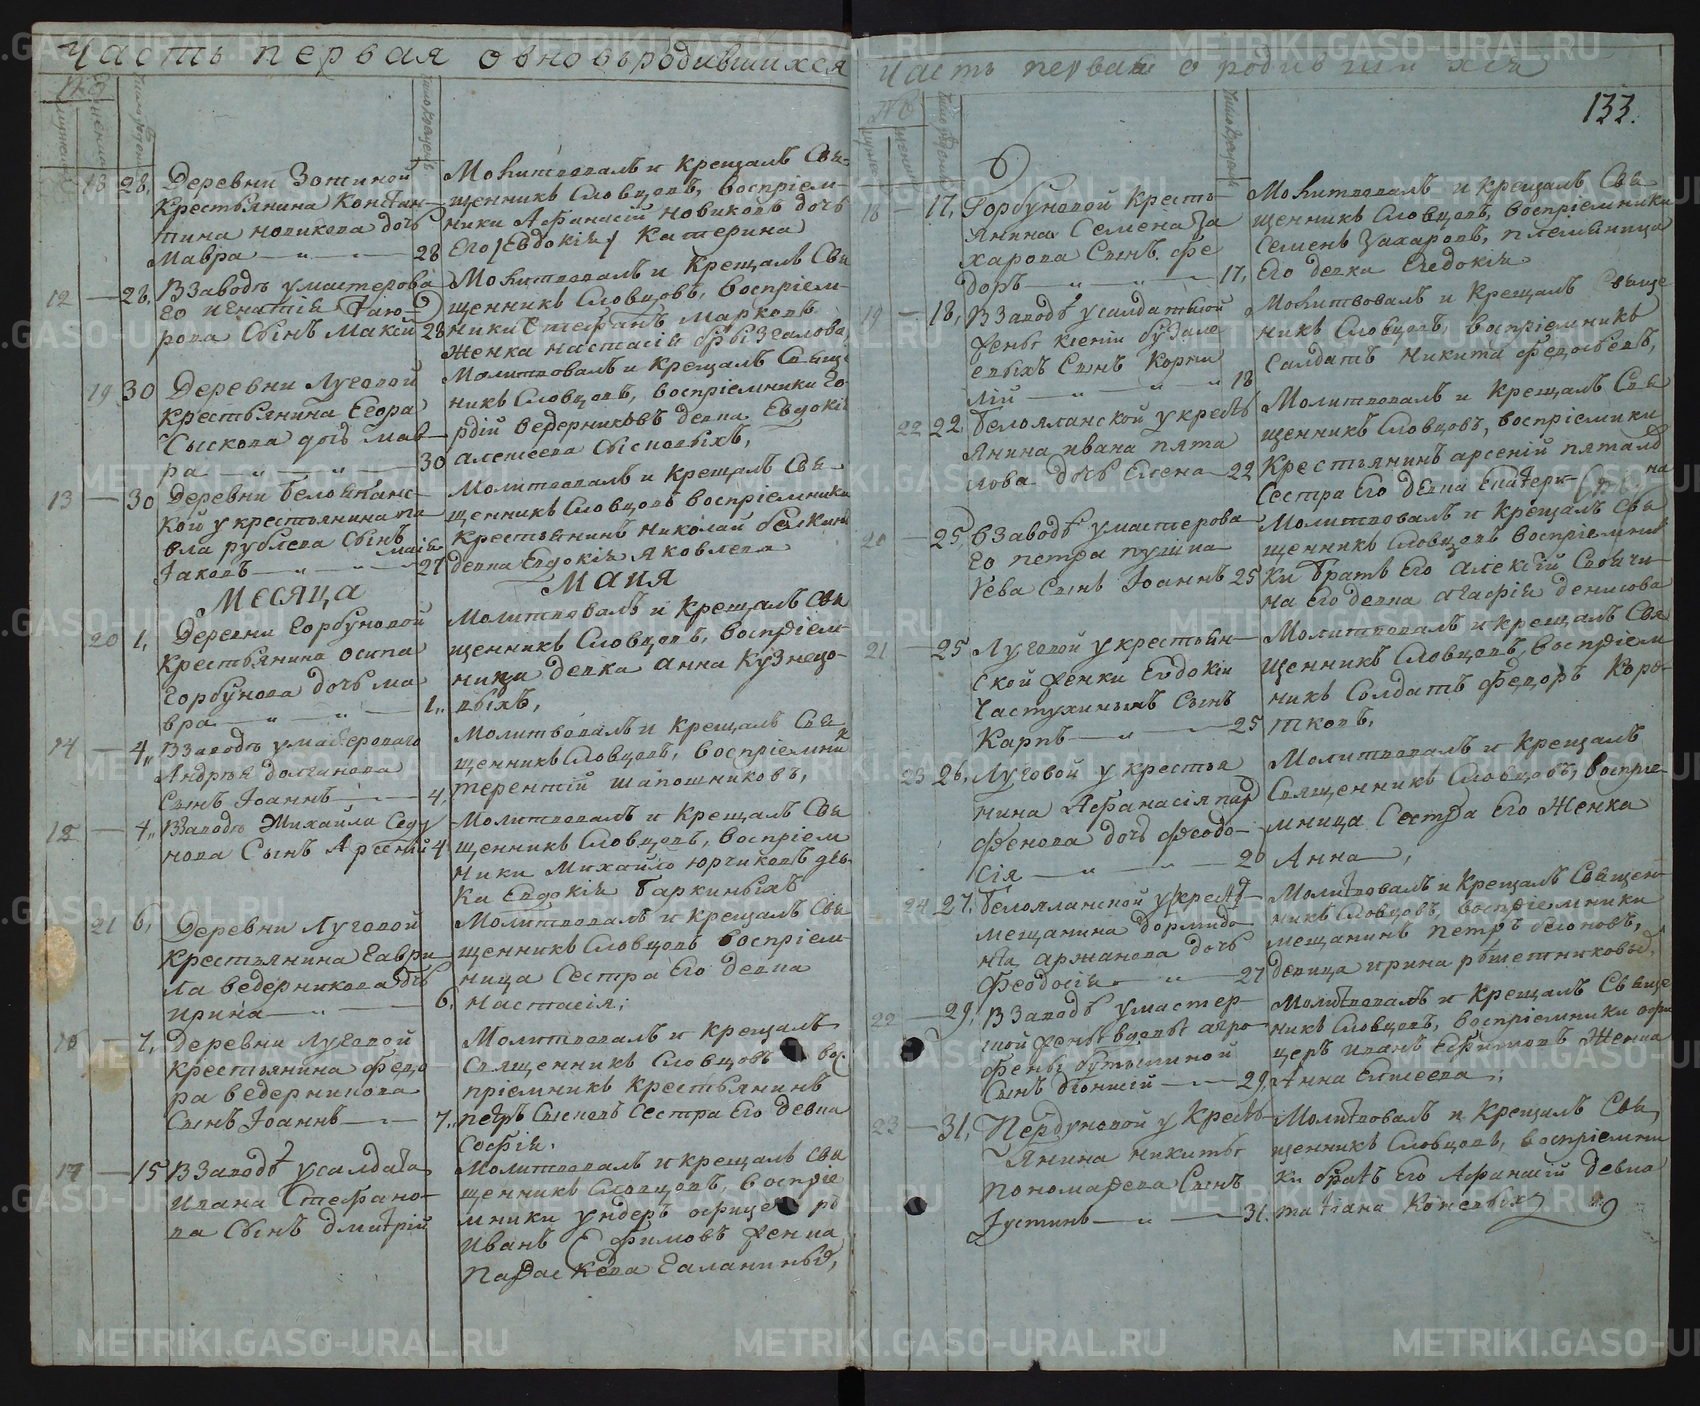 Часть первая о вновь родившихся
18 28, Деревни Зотиной
Крестьянина Констан-
тина Новикова дочь
Мавра — „ — 28
Молитвовалъ и Крещалъ Свя-
щенникъ Словцовъ, воспріем-
ники Афанасій Новиковъ дочь
Его Евдокія Катерина
12 — 28, В Заводѣ у мастерова
го Игнатія
рова Сынъ Макій 28
Молитвовалъ и Крещалъ Свя
щенникъ Словцовъ, воспріем-
ники Стефанъ Марковъ
Женка Настасія Брызгалова
19 30 Деревни Луговой
Крестьянина Егора
Сыскова дочь Мав-
ра — „ — „ — 30
Молитвовалъ и Крещалъ Свяще
никъ Словцовъ, воспріемники Го
рдій Ведерниковъ девка Евдокія
Алексеева
13 — 30 Деревни Белоянанс-
кой у крестьянина Па
вла Рублева Сынъ
маія
Іаковъ — „ — „ — 27
Молитвовалъ и Крещалъ Свя-
щенникъ Словцовъ воспріемники
Крестьянинъ Николай
девка Евдокія Яковлева
Месяца Маия
20 1, Деревни Горбуновой
Крестьянина Осипа
Горбунова дочь Ма
вра — „ — „ — 1„
Молитвовалъ и Крещалъ Свя
щенникъ Словцовъ, воспріем-
ница девка Анна Кузнецо-
выхъ,
14 — 4„ В Заводѣ у мастероваго
Андрея Долганова
Сынъ Іоаннъ — 4,
Молитвовалъ и Крещалъ Свя
щенникъ Словцовъ, воспріемник
Терентій Шапошниковъ,
15 — 4„ В Заводѣ Михайла Седу
нова Сынъ Арсений 4
Молитвовалъ и Крещалъ Свя
щенникъ Словцовъ, воспріем
ники Михайло Юрчиковъ дев-
ка Евдокія Баркиныхъ
21 6, Деревни Луговой
Крестьянина Гаври
ла Ведерникова дчь
Ирина — „ — 6,
Молитвовалъ и Крещалъ Свя
щенникъ Словцовъ воспріем-
ница Сестра Его девка
Настасія;
16 — 7, Деревни Луговой
Крестьянина Федо
ра Ведерникова
Сынъ Іоаннъ — „ — 7„
Молитвовалъ и Крещалъ
Священникъ Словцовъ вос-
пріемникъ Крестьянинъ
Петръ Сысковъ Сестра Его девка
Софія.
17 — 15 В Заводѣ у салдата
Ивана Стефано-
ва Сынъ Дмитрій
Молитвовалъ и Крещалъ Свя
щенникъ Словцовъ, воспріе
мники Ундеръ Офицеръ
Иванъ Ефимовъ женка
Параскева Галаниныхъ,
Часть первая о родившихся
133.
18 — 17, Горбуновой Кресть
янина Семена За
харова Сынъ Фе
доръ — „ — „ — 17,
Молитвовалъ и Крещалъ Свя
щенникъ Словцовъ, воспріемники
Семенъ Захаровъ, племянница
Его девка Евдокия
19 — 18, В Заводѣ у салдатской
жены Ксеніи
Сынъ Корни
лій — „ — „ 18
Молитвовалъ и Крещалъ Свяще
никъ Словцовъ, воспріемникъ
Салдатъ Никита Федосеевъ,
22 22 Белояланской у крестъ
янина Ивана Пята
лова дочь Елена 22
Молитвовалъ и Крещалъ Свя
щенникъ Словцовъ, воспріемники
Крестьянинъ Арсеній Пяталов
Сестра Его девка Екатери-
на
20 — 25, В Заводѣ у мастерова
го Петра Пушка
рева Сынъ Іоаннъ 25
Молитвовалъ и Крещалъ Свя
щенникъ Словцовъ воспріемни
ки братъ Его Алексій Своячи-
на Его девка Агафія Денисова
21 — 25 Луговой у крестьян-
ской женки Евдокіи
Частухиныхъ Сынъ
Карпъ — „ — 25
Молитвовалъ и Крещалъ Свя
щенникъ Словцовъ, воспріем
никъ Солдатъ Федоръ Коро-
тковъ,
23 26, Луговой у крестья
нина Афанасія Пар
фенова дочь Феодо-
сія — „ — „ — 26
Молитвовалъ и Крещалъ
Священникъ Словцовъ, воспріе-
мница Сестра Его Женка
Анна,
24 27, Белояланской у крест
мещанина Дормидо
нта Аржанова дочь
Феодосія — „ — 27
Молитвовалъ и Крещалъ Священ-
никъ Словцовъ, воспріемники
мещанинъ Петръ Белоновъ,
девица Ирина Решетниковых,
22 — 29, В Заводѣ у мастер-
ской жены вдовы Агро-
фены Бутылиной
Сынъ Діонисій — „ — 29,
Молитвовалъ и Крещалъ Свяще
никъ Словцовъ, воспріемники Офи
церъ Иванъ Ефимовъ Женка
Анна Елисеева;
23 — 31, Пердуновой у Крестъ
янина Никиты
Пономарева Сынъ
Іустинъ — „ — 31.
Молитвовалъ и Крещалъ Свя
щенникъ Словцовъ, воспріемни
ки братъ Его Афанасій девка
Татіана Коневых